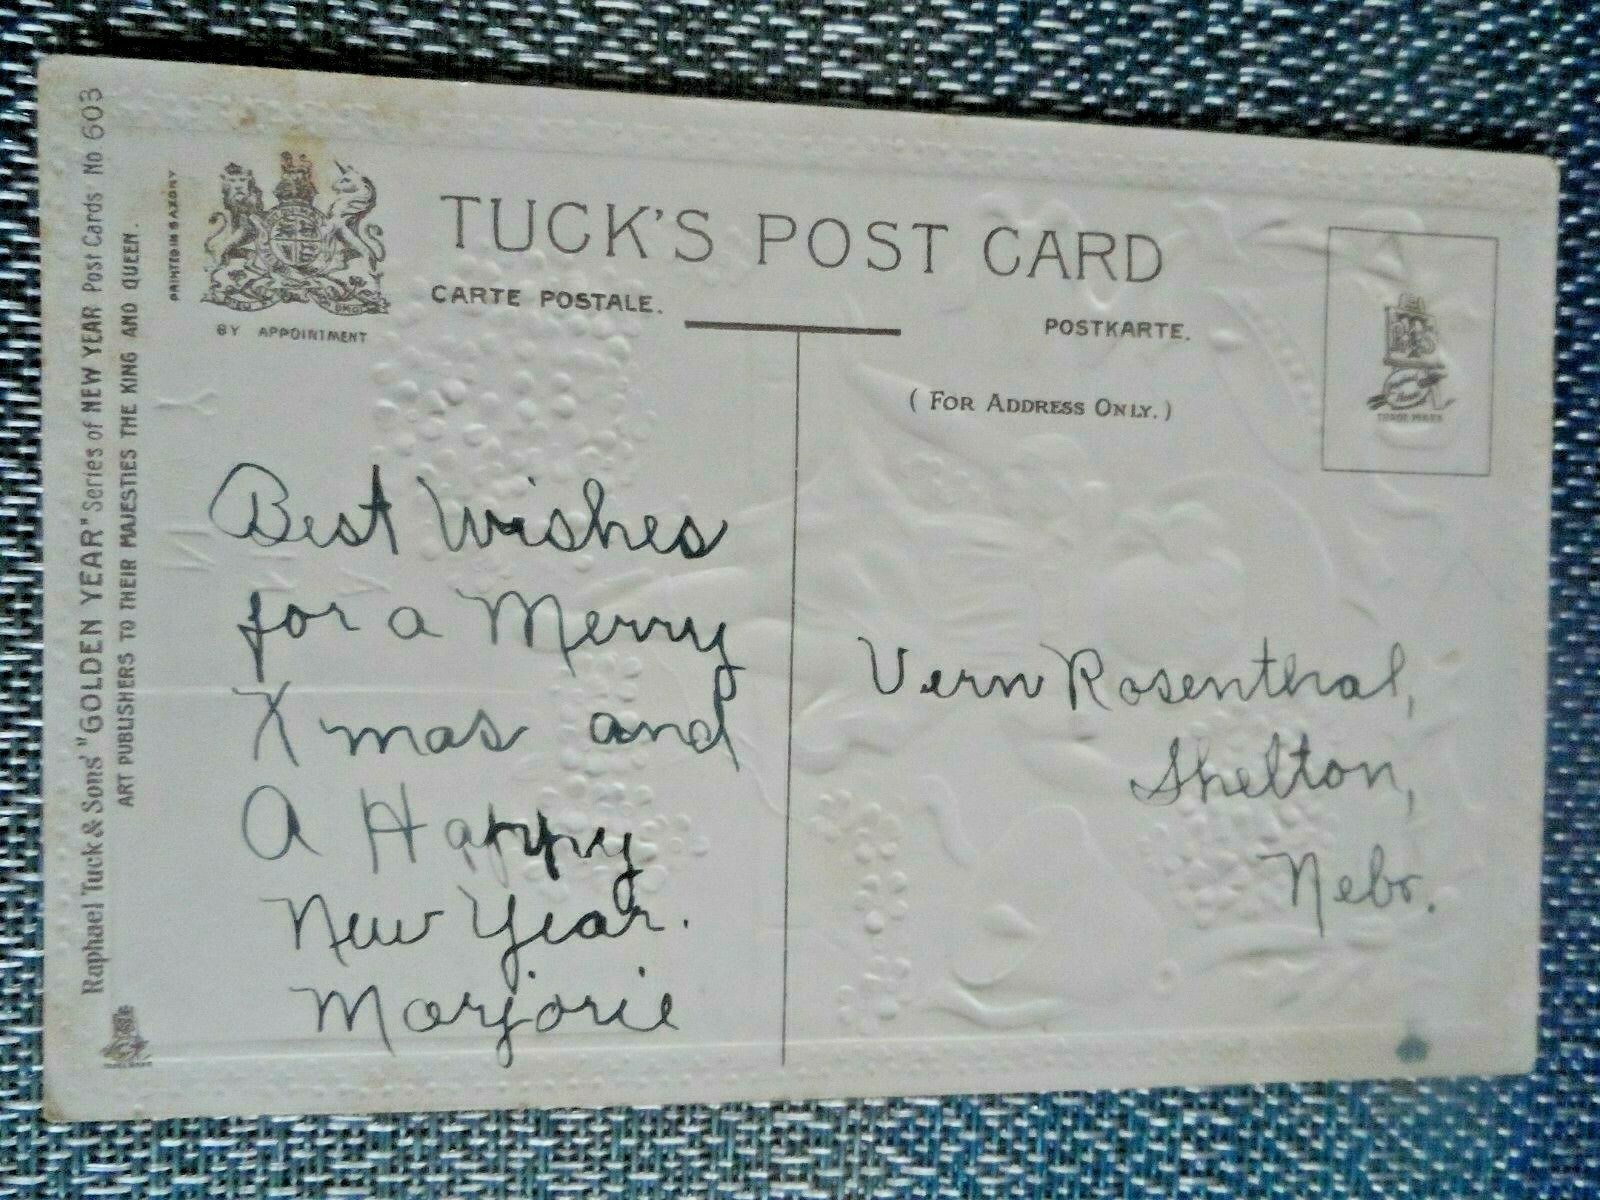 Raphael Tuck & Sons' "GOLDEN YEAR" Series of NEW YEAR Post Cards No. 603
ART PUBLISHERS TO THEIR MAJESTIES THE KING AND QUEEN.
PRINTED IN SAXONY
BY APPOINTMENT
TUCK'S POST CARD
CARTE POSTALE.
POSTKARTE.
(FOR ADDRESS ONLY.)
TRADE MARK
Best Wishes
for a Merry
Xmas and
A Happy
New Year.
Marjorie
Vern Rosenthal,
Shelton,
Nebr.